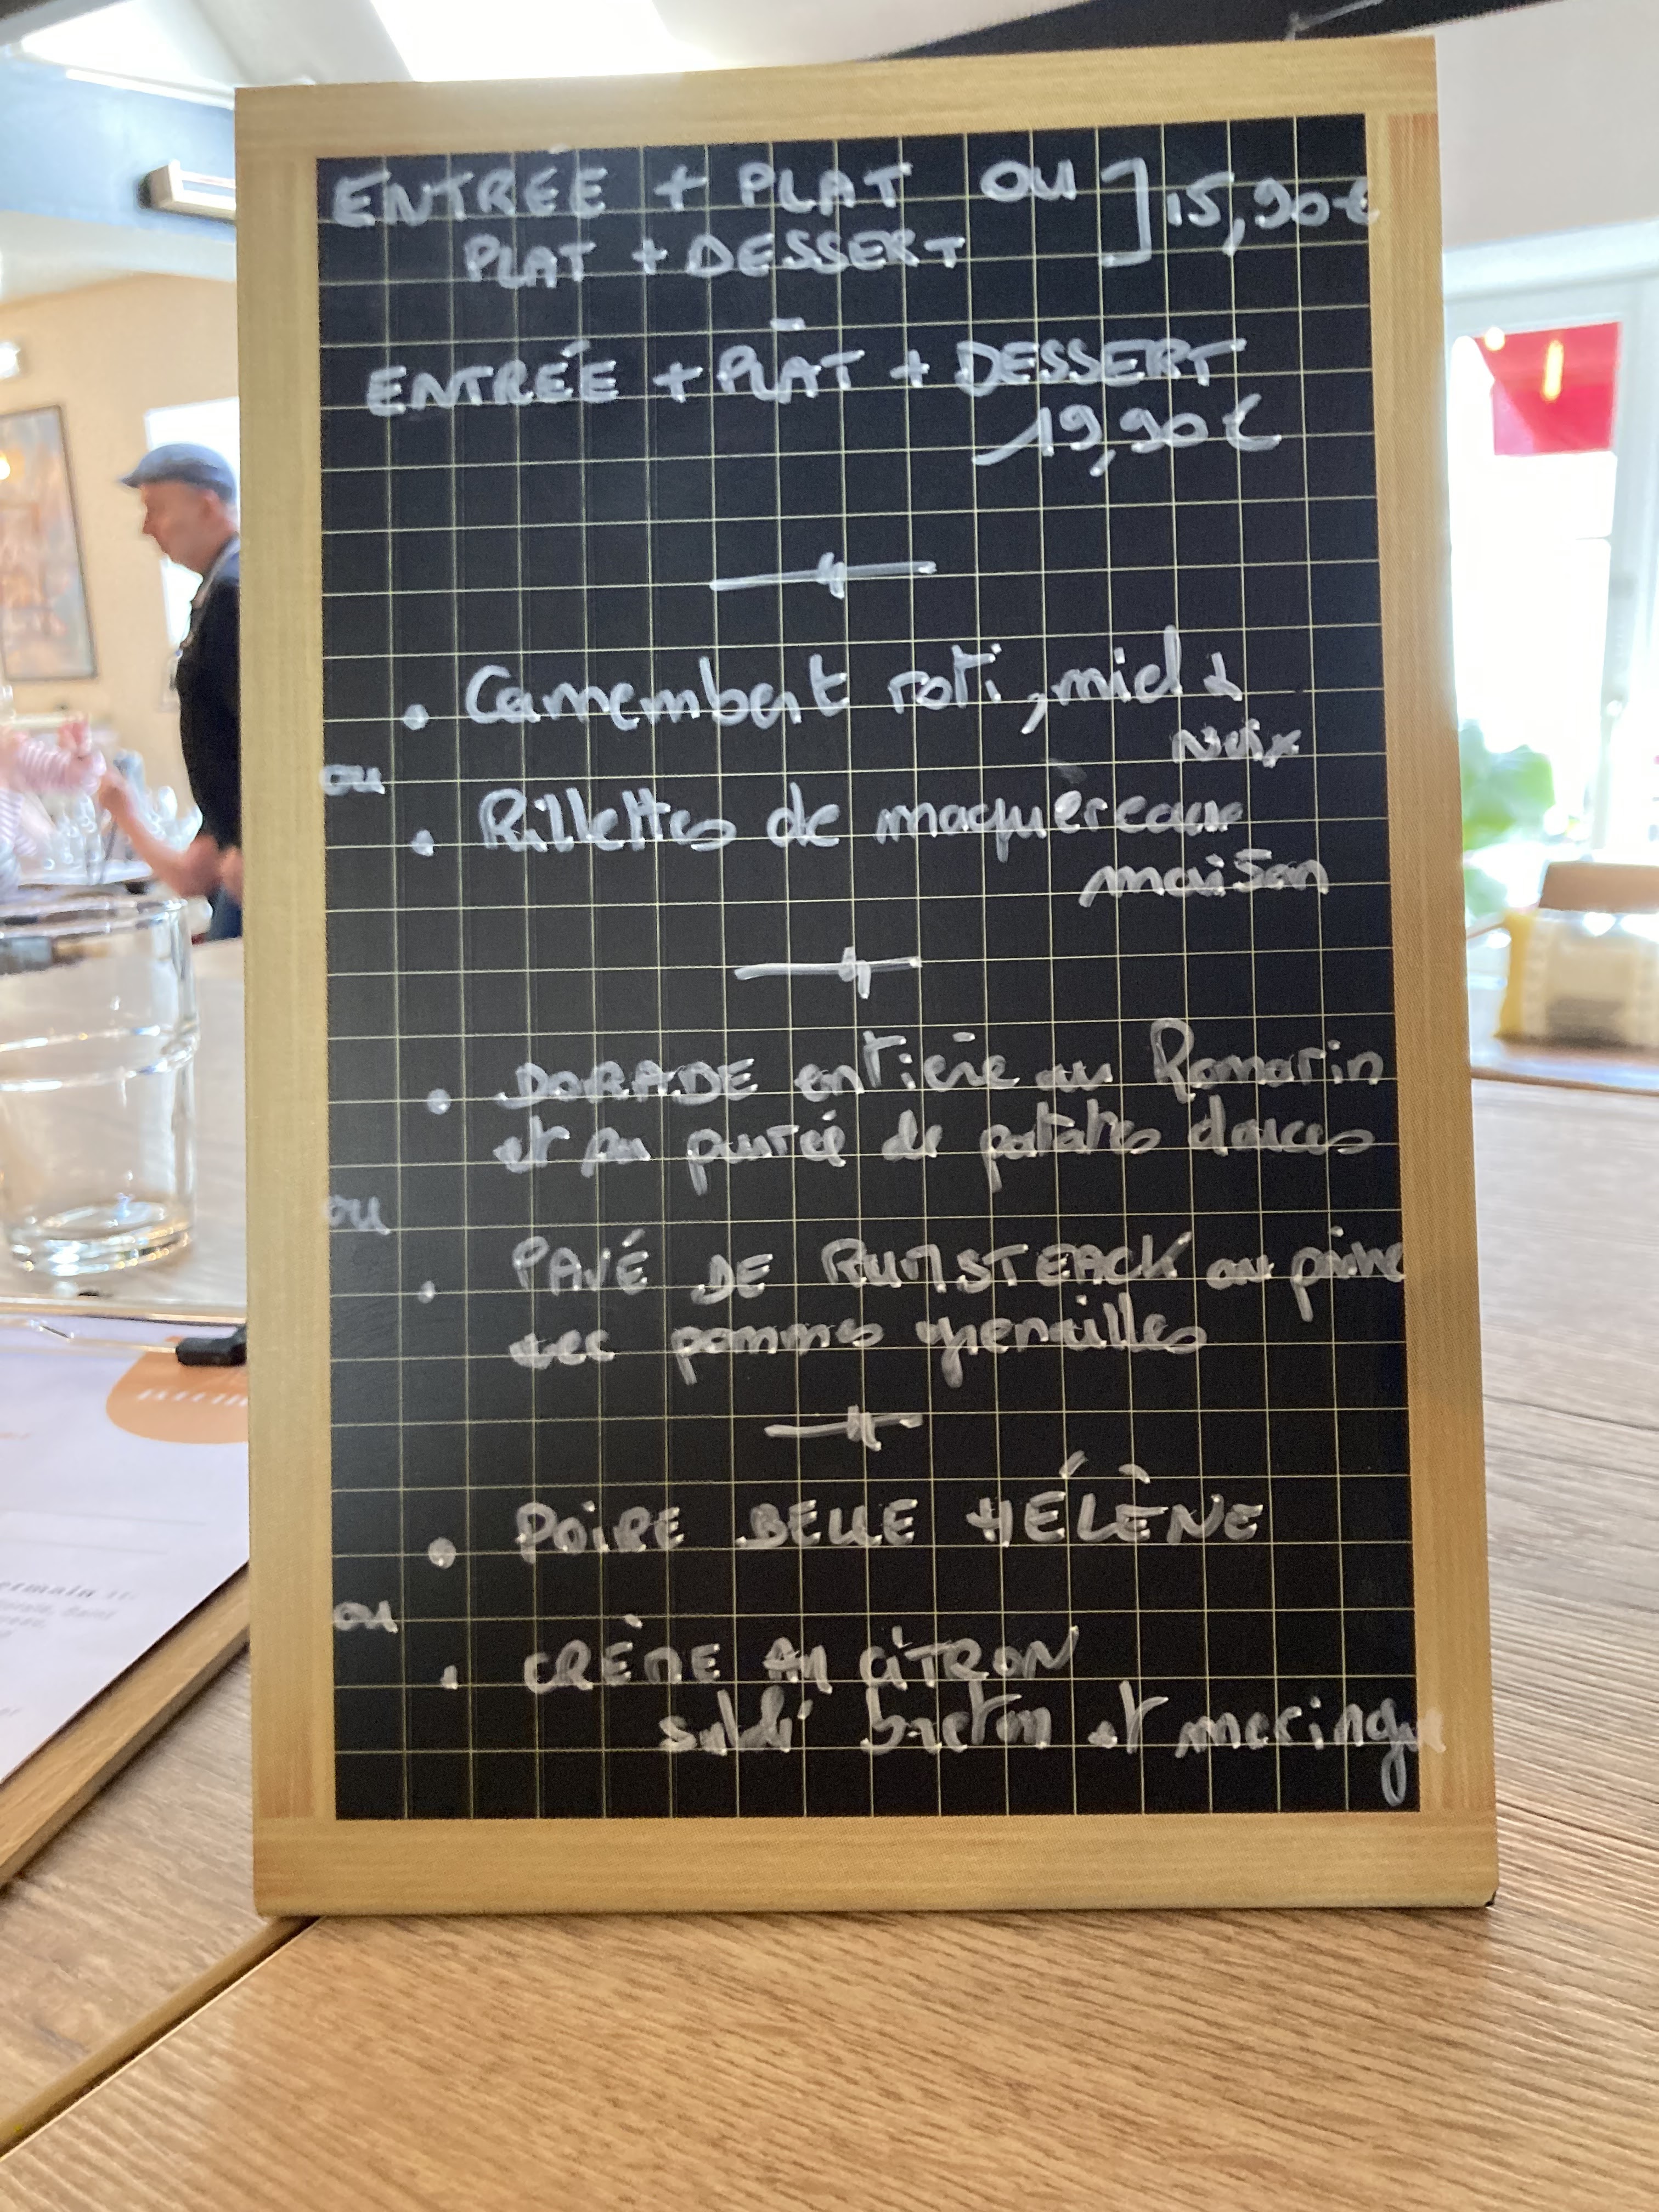 ENTRÉE + PLAT OU ] 15,90€
PLAT + DESSERT
ENTRÉE + PLAT + DESSERT
19,90€
• Camembert roti, miel &
noix
ou
• Rillettes de maquèreaux
maison
• DORADE entière au Romarin
et sa purée de patates douces
ou
• PAVÉ DE RUMSTEACK au poivre
avec pommes grenailles
• POIRE BELLE HÉLÈNE
ou
• CRÈME AU CITRON
sablé breton et meringue
ermain